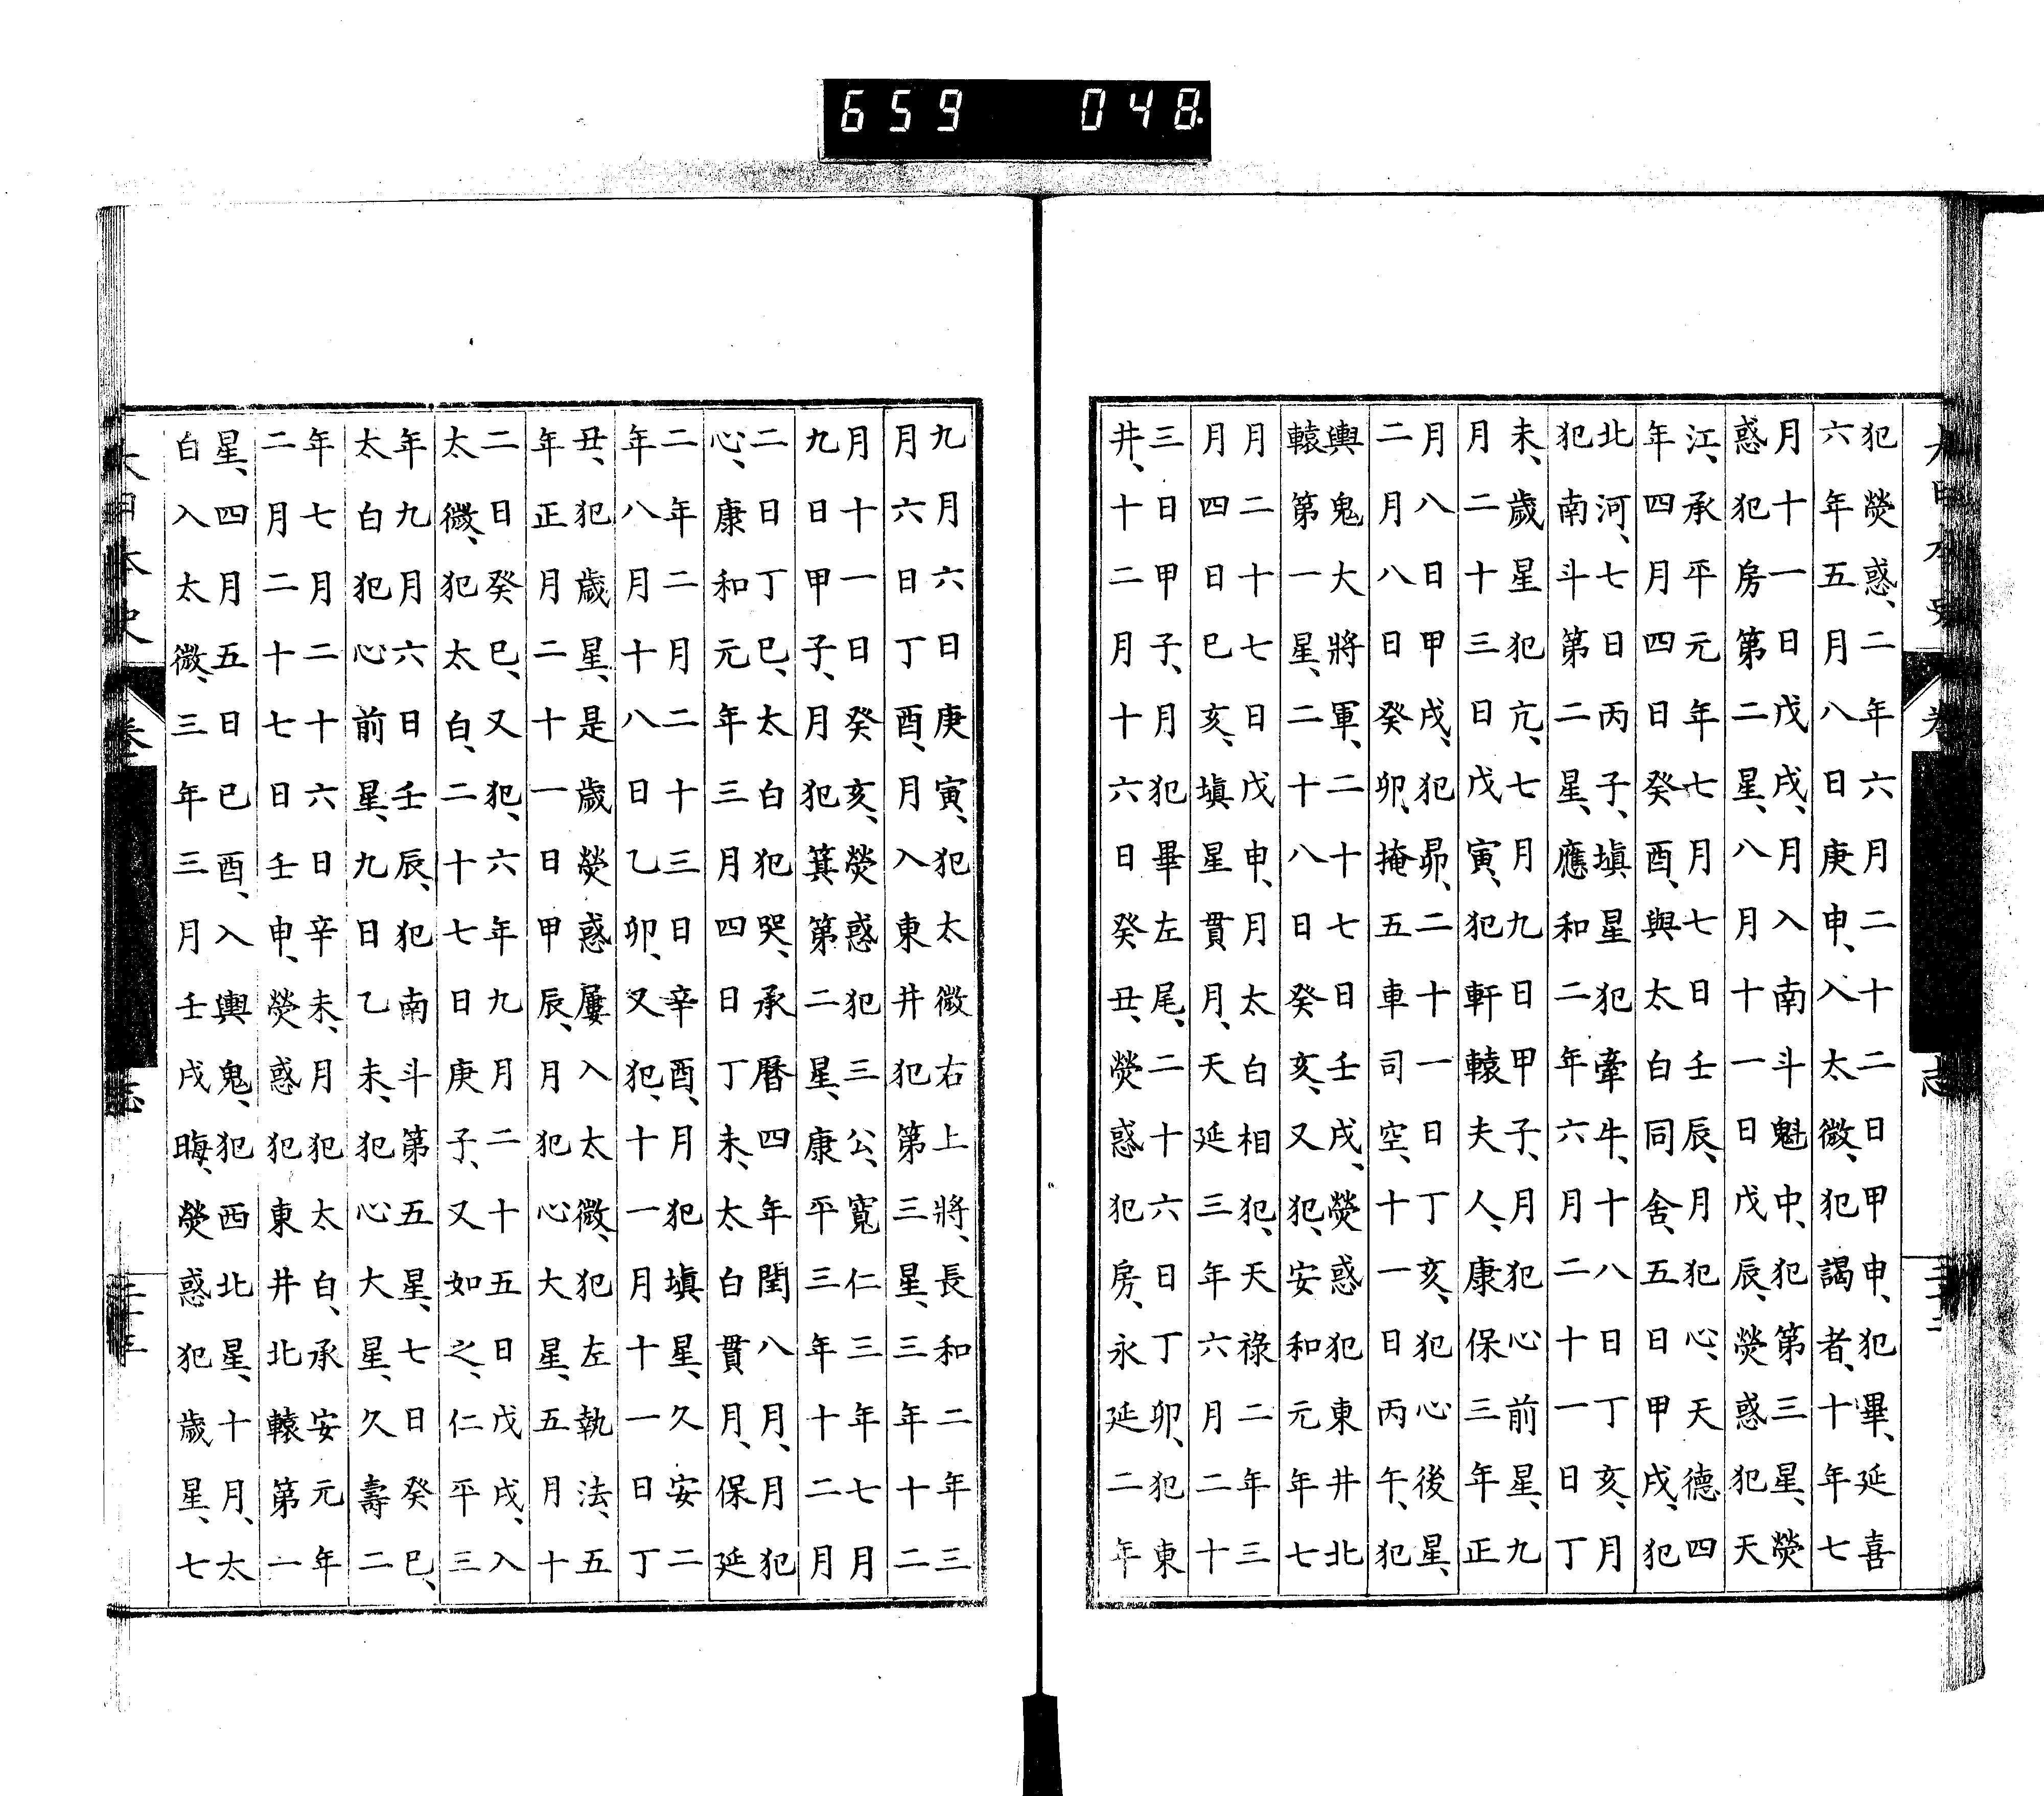 犯熒惑、二年六月二十二日甲申、犯畢、延喜
六年五月八日庚申、入太微、犯謁者、十年七
月十一日戊戌、月入南斗魁中、犯第三星、熒
惑犯房第二星、八月十一日戊辰、熒惑犯天
江、承平元年七月七日壬辰、月犯心、天德四
年四月四日癸酉、與太白同舍、五日甲戌、犯
北河、七日丙子、塡星犯牽牛、十八日丁亥、月
犯南斗第二星、應和二年六月二十一日丁
未、歲星犯亢、七月九日甲子、月犯心前星、九
月二十三日戊寅、犯軒轅夫人、康保三年正
月八日甲戌、犯昴、二十一日丁亥、犯心後星、
二月八日癸卯、掩五車司空、十一日丙午、犯
輿鬼大將軍、二十七日壬戌、熒惑犯東井北
轅第一星、二十八日癸亥、又犯、安和元年七
月二十七日戊申、月太白相犯、天祿二年三
月四日巳亥、塡星貫月、天延三年六月二十
三日甲子、月犯畢左尾、二十六日丁卯、犯東
井、十二月十六日癸丑、熒惑犯房、永延二年
九月六日庚寅、犯太微右上將、長和二年三
月六日丁酉、月入東井犯第三星、三年十二
月十一日癸亥、熒惑犯三公、寬仁三年七月
九日甲子、月犯箕第二星、康平三年十二月
二日丁巳、太白犯哭、承曆四年閏八月、月犯
心、康和元年三月四日丁未、太白貫月、保延
二年二月二十三日辛酉、月犯塡星、久安二
年八月十八日乙卯、又犯、十一月十一日丁
丑、犯歲星、是歲熒惑屢入太微、犯左執法、五
年正月二十一日甲辰、月犯心大星、五月十
二日癸巳、又犯、六年九月二十五日戊戌、入
太微、犯太白、二十七日庚子、又如之、仁平三
年九月六日壬辰、犯南斗第五星、七日癸巳、
太白犯心前星、九日乙未、犯心大星、久壽二
年七月二十六日辛未、月犯太白、承安元年
二月二十七日壬申、熒惑犯東井北轅第一
星、四月五日巳酉、入輿鬼、犯西北星、十月、太
白入太微、三年三月壬戌晦、熒惑犯歲星、七
大日本史
卷
志
659 048